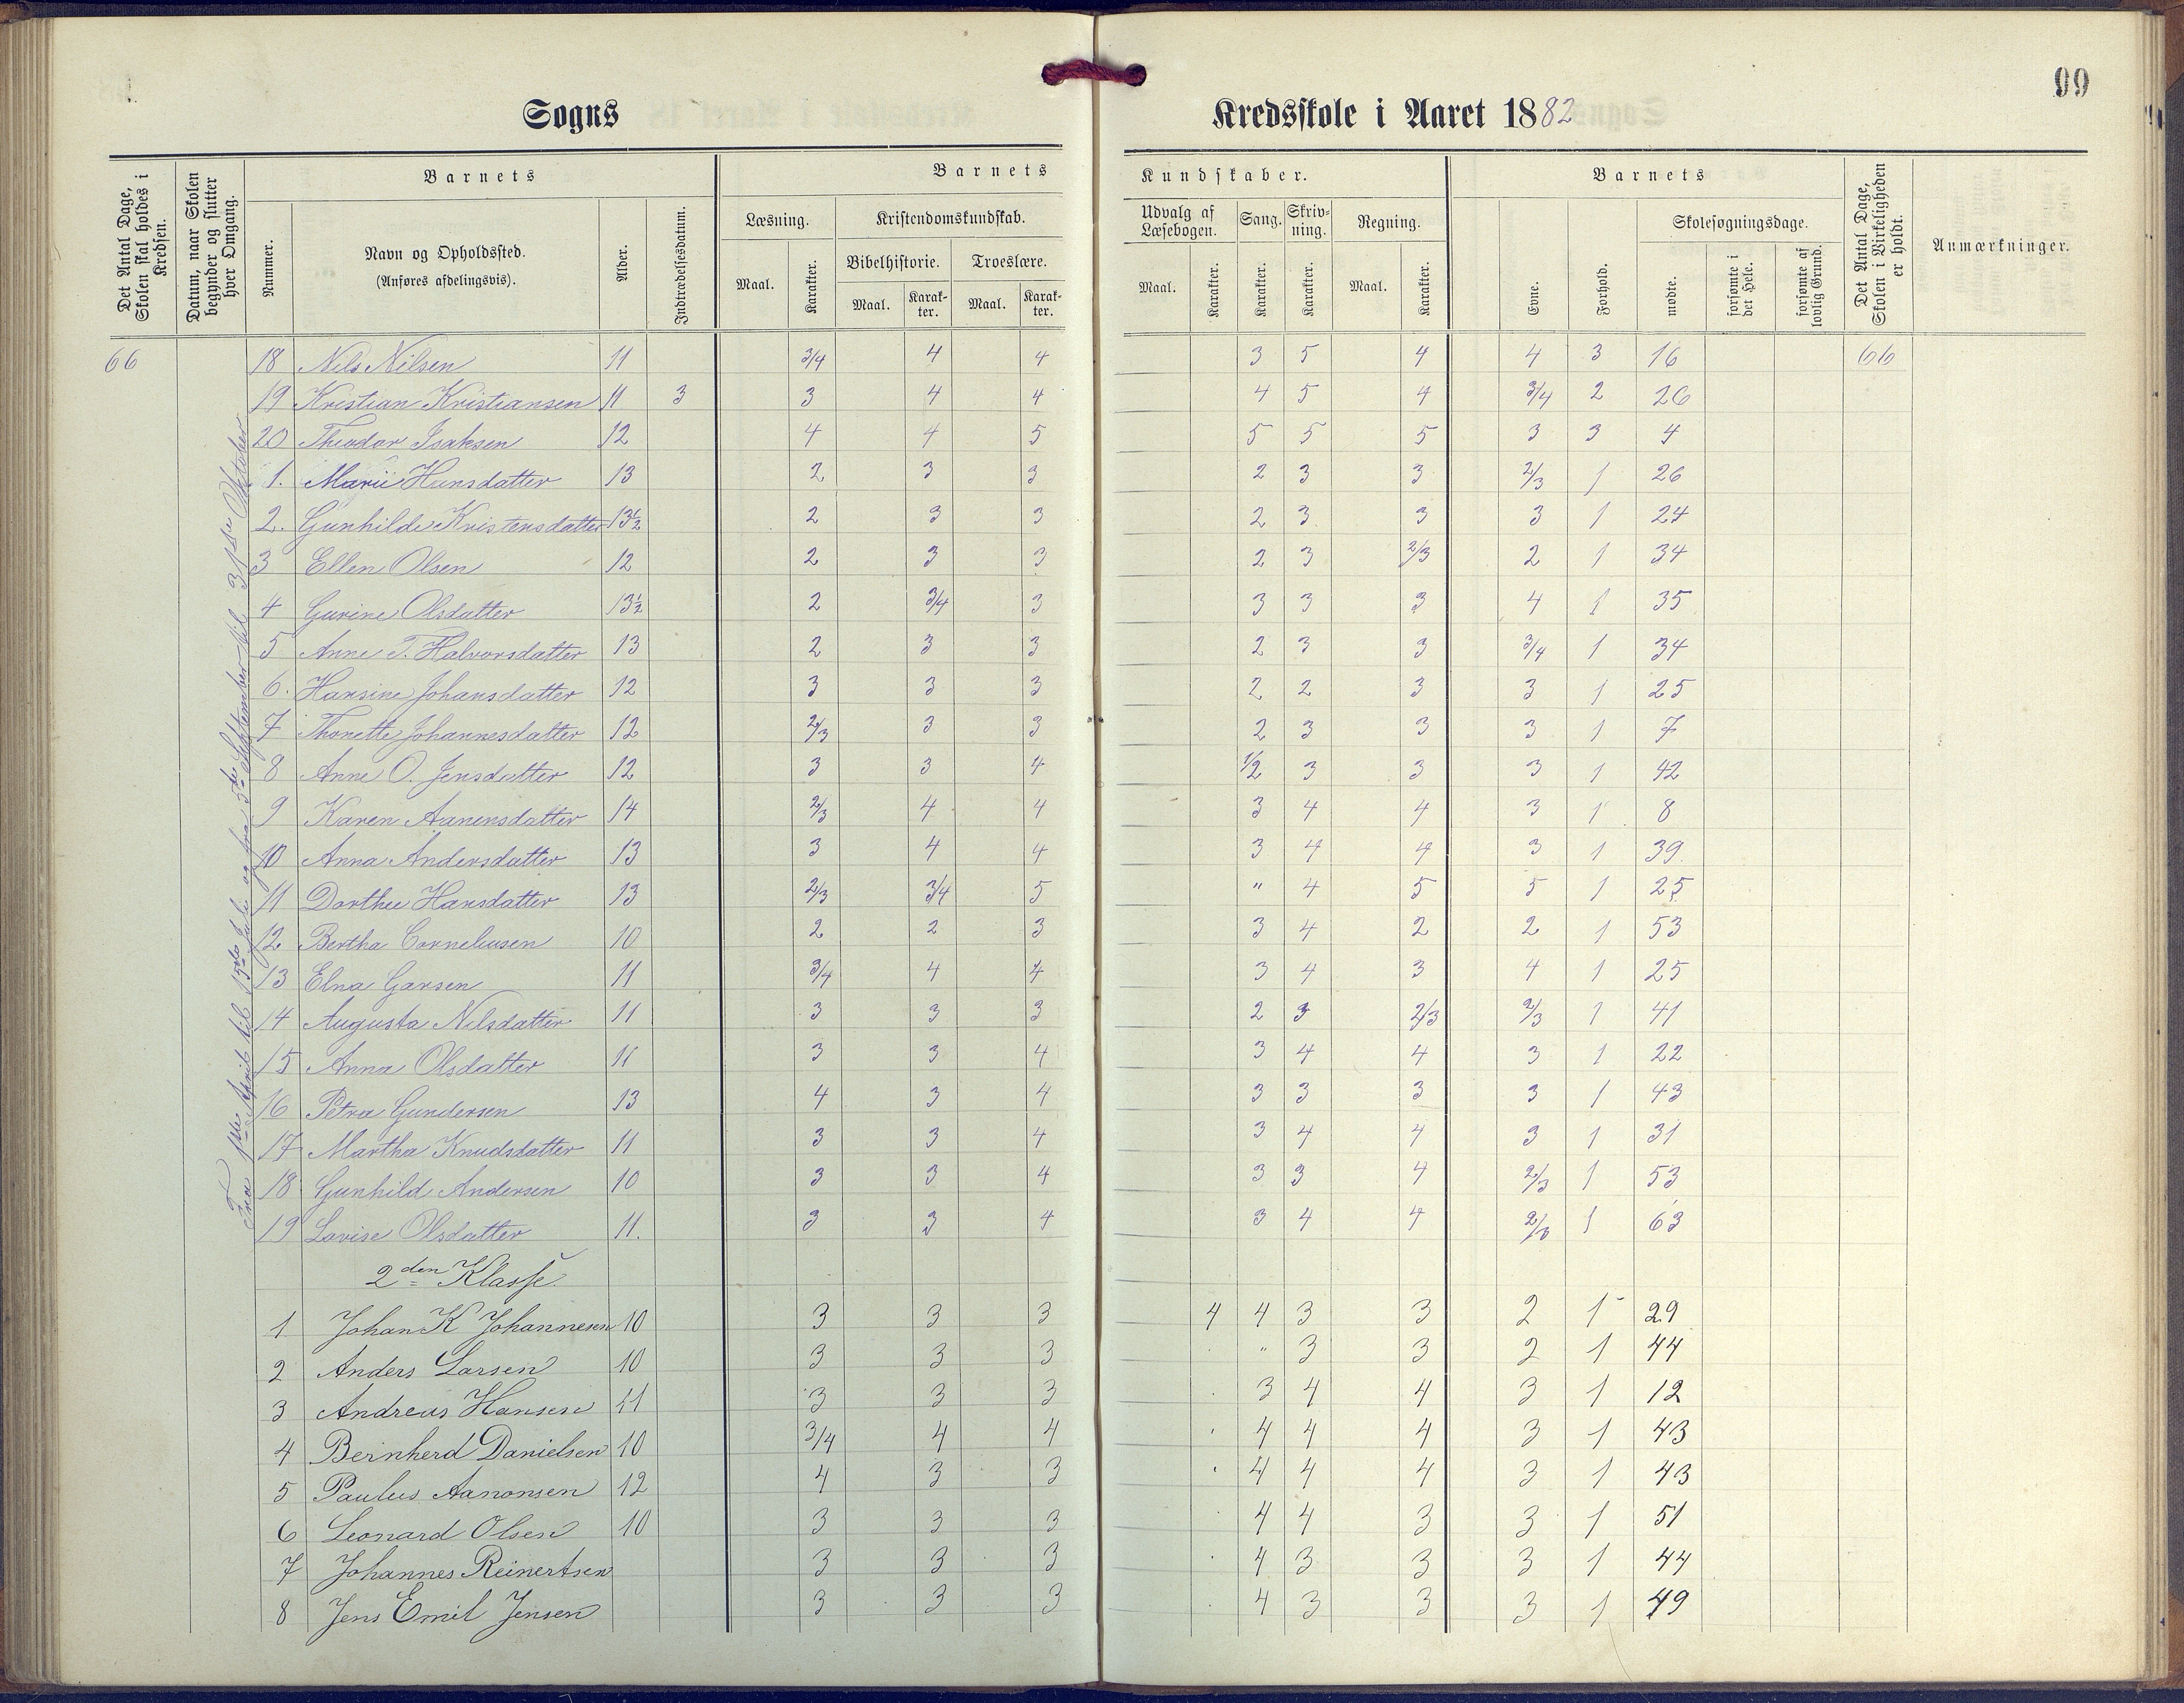 99
Sogns Kredsskole i Aaret 1882
Det Antal Dage, Skolen skal holdes i Kredsen.
Datum, naar Skolen begynder og slutter hver Omgang.
Barnets
Nummer.
Navn og Opholdssted.
(Anføres afdelingsvis).
Alder.
Indtrædelsesdatum.
Barnets Kundskaber.
Læsning.
Maal. Karakter.
Kristendomskundskab.
Bibelhistorie. Troeslære.
Maal. Karakter. Maal. Karakter.
Udvalg af Læsebogen.
Maal. Karakter.
Sang.
Karakter.
Skrivning.
Karakter.
Regning.
Maal. Karakter.
Barnets
Evne. Forhold.
Skolesøgningsdage.
mødte. forsømte i det Hele. forsømte af lovlig Grund.
Det Antal Dage, Skolen i Virkeligheden er holdt.
Anmærkninger.
Fra 1ste April til 15de Juli og fra 5te September til 31te Oktober
66 18 Nils Nilsen 11 3/4 4 4 3 5 4 4 3 16 66
19 Kristian Kristiansen 11 3 3 4 4 4 5 4 3/4 2 26
20 Theodor Isaksen 12 4 4 5 5 5 5 3 3 4
1. Marie Hansdatter 13 2 3 3 2 3 3 2/3 1 26
2. Gunhilde Kristensdatter 13½ 2 3 3 2 3 3 3 1 24
3 Ellen Olsen 12 2 3 3 2 3 2/3 2 1 34
4 Gurine Olsdatter 13½ 2 3/4 3 3 3 3 4 1 35
5 Anne T. Halvorsdatter 13 2 3 3 2 3 3 3/4 1 34
6. Hansine Johansdatter 12 3 3 3 2 2 3 3 1 25
7 Thonette Johannesdatter 12 2/3 3 3 2 3 3 3 1 7
8 Anne O. Jensdatter 12 3 3 4 1/2 3 3 3 1 42
9 Karen Aanensdatter 14 2/3 4 4 3 4 4 3 1 8
10 Anna Andersdatter 13 3 4 4 3 4 4 3 1 39
11 Dorthee Hansdatter 13 2/3 3/4 5 " 4 5 5 1 25
12 Bertha Corneliusen 10 2 2 3 3 4 2 2 1 53
13 Elna Garsen 11 3/4 4 4 3 4 3 4 1 25
14 Augusta Nilsdatter 11 3 3 3 2 3 2/3 2/3 1 41
15 Anna Olsdatter 11 3 3 4 3 4 4 3 1 22
16 Petra Gundersen 13 4 3 4 3 3 3 3 1 43
17 Martha Knudsdatter 11 3 3 4 3 4 4 3 1 31
18 Gunhild Andersen 10 3 3 4 3 3 4 2/3 1 53
19 Lovise Olsdatter 11. 3 3 4 3 4 4 2/3 1 63
2den Klasse
1 Johan K Johannesen 10 3 3 3 4 4 3 3 2 1 29
2 Anders Larsen 10 3 3 3 " 3 3 2 1 44
3 Andreas Hansen 11 3 3 3 3 4 4 3 1 12
4 Bernherd Danielsen 10 3/4 4 4 4 4 4 3 1 43
5 Paulus Aanonsen 12 4 3 3 4 4 4 3 1 43
6 Leonard Olsen 10 3 3 3 4 4 3 3 1 51
7 Johannes Reinertsen 3 3 3 4 3 3 3 1 44
8 Jens Emil Jensen 3 3 3 4 3 3 3 1 49